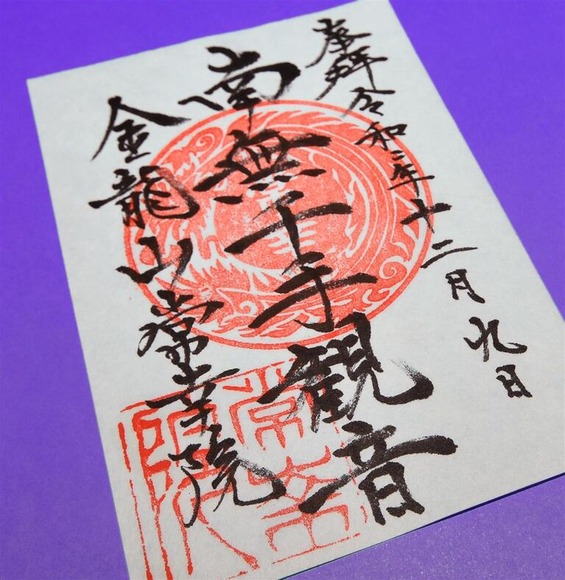 奉拝 令和三年十二月九日
南無千手観音
金龍山常幸院
常幸院